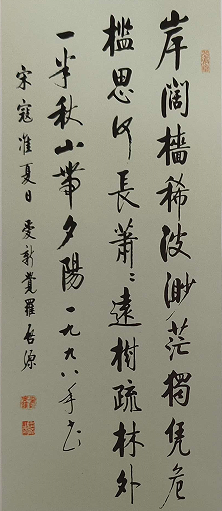 岸闊檣稀波渺茫獨凭危
檻思何長蕭〻遠樹疏林外
一半秋山帶夕陽一九九八年書
宋寇准夏日 愛新覺羅啓源